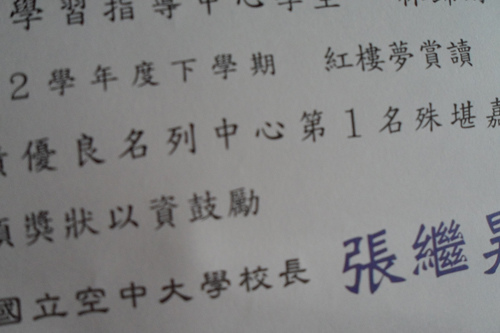 學習指導中心學生
2學年度下學期 紅樓夢賞讀
優良名列中心第1名殊堪嘉
獎狀以資鼓勵
國立空中大學校長 張繼